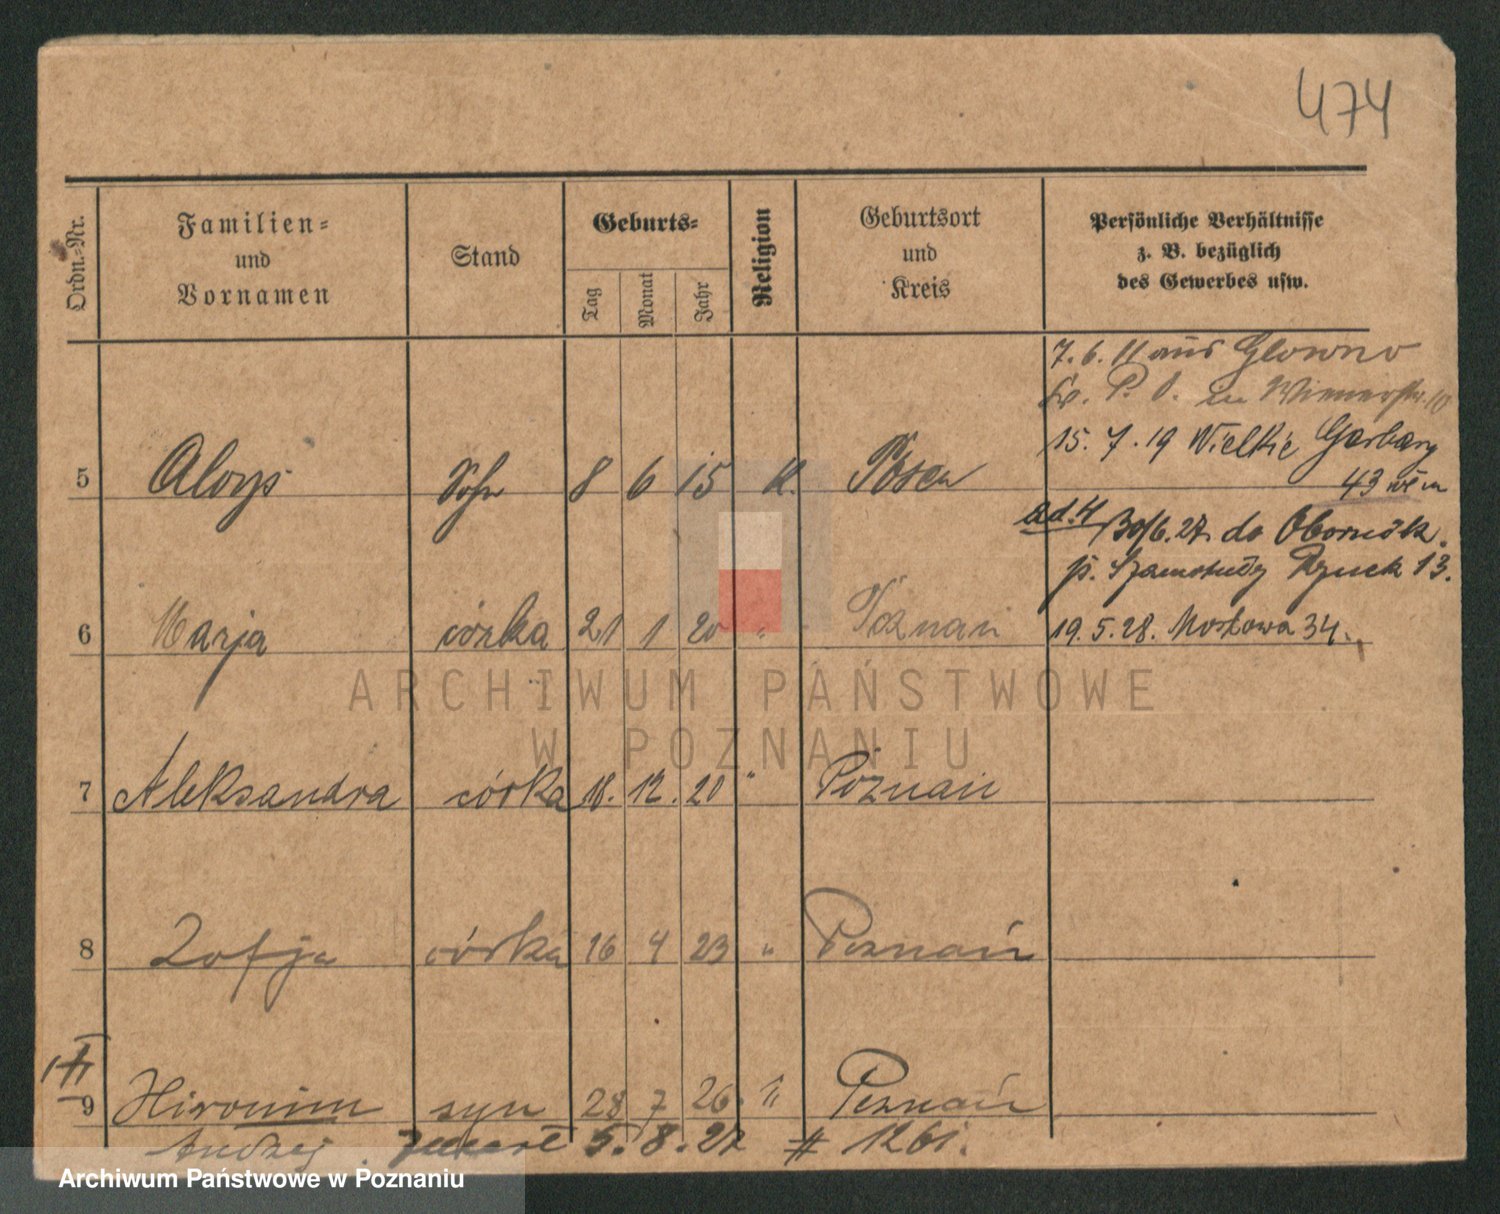 474
Ordn.-Nr.
Familien-
und
Vornamen
Stand
Geburts-
Tag
Monat
Jahr
Religion
Geburtsort
und
Kreis
Persönliche Verhältnisse
z. B. bezüglich
des Gewerbes usw.
7. 6. 11 aus Glowno
Kr. P. O. in Wienerstr. 10
15. 7. 19 Wielkie Garbary
43
5 Aloys Sohn 8 6 15 K. Posen
ad. 4 30/6. 27. do Obornik
p. Szamotuły Rynek 13.
6 Marja córka 21 1 20 " Poznań 19. 5. 28. Mostowa 34.
7 Aleksandra córka 18. 12. 20 " Poznań
8 Zofja córka 16 4 23 " Poznań
9 Hironim syn 28 7 26. " Poznań
Andrzej. zmarł 5. 8. 27 # 1261.
ARCHIWUM PAŃSTWOWE
W POZNANIU
Archiwum Państwowe w Poznaniu